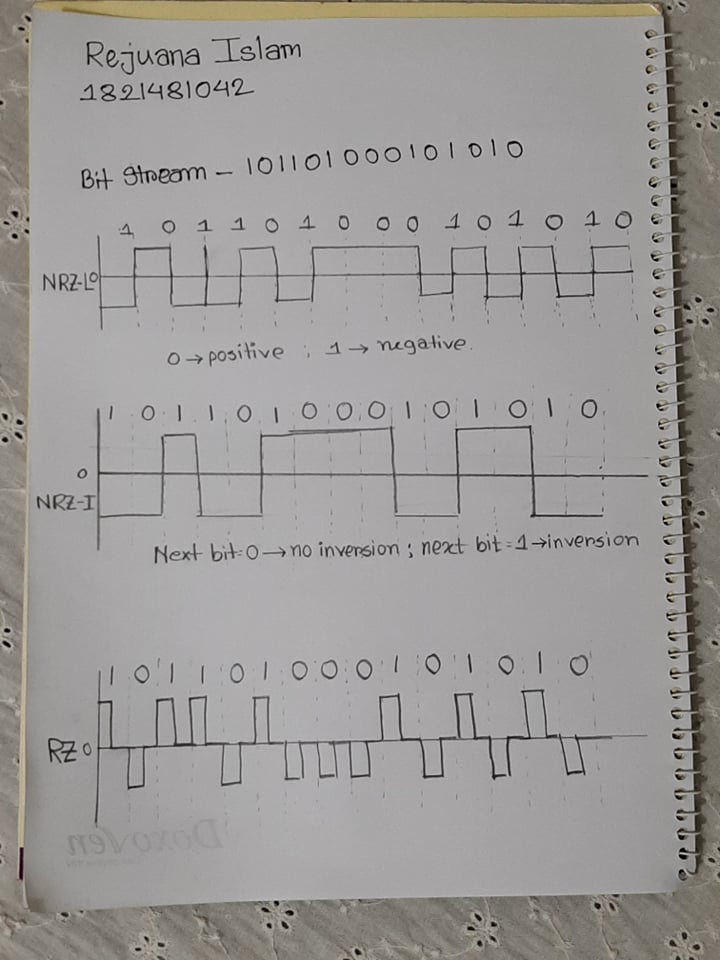 Rejuana Islam
1821481042
Bit Stream - 101101000101010
1 0 1 1 0 1 0 0 0 1 0 1 0 1 0
NRZ-L 0
0 → positive ; 1 → negative.
1 0 1 1 0 1 0 0 0 1 0 1 0 1 0
0
NRZ-I
Next bit=0 → no inversion ; next bit=1 → inversion
1 0 1 1 0 1 0 0 0 1 0 1 0 1 0
RZ 0